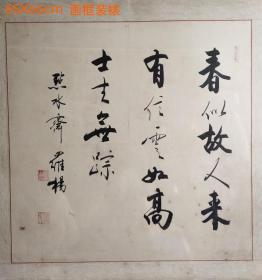 60x60cm 画框装裱
春似故人来
有信云如高
士去无踪
点水斋 罗杨